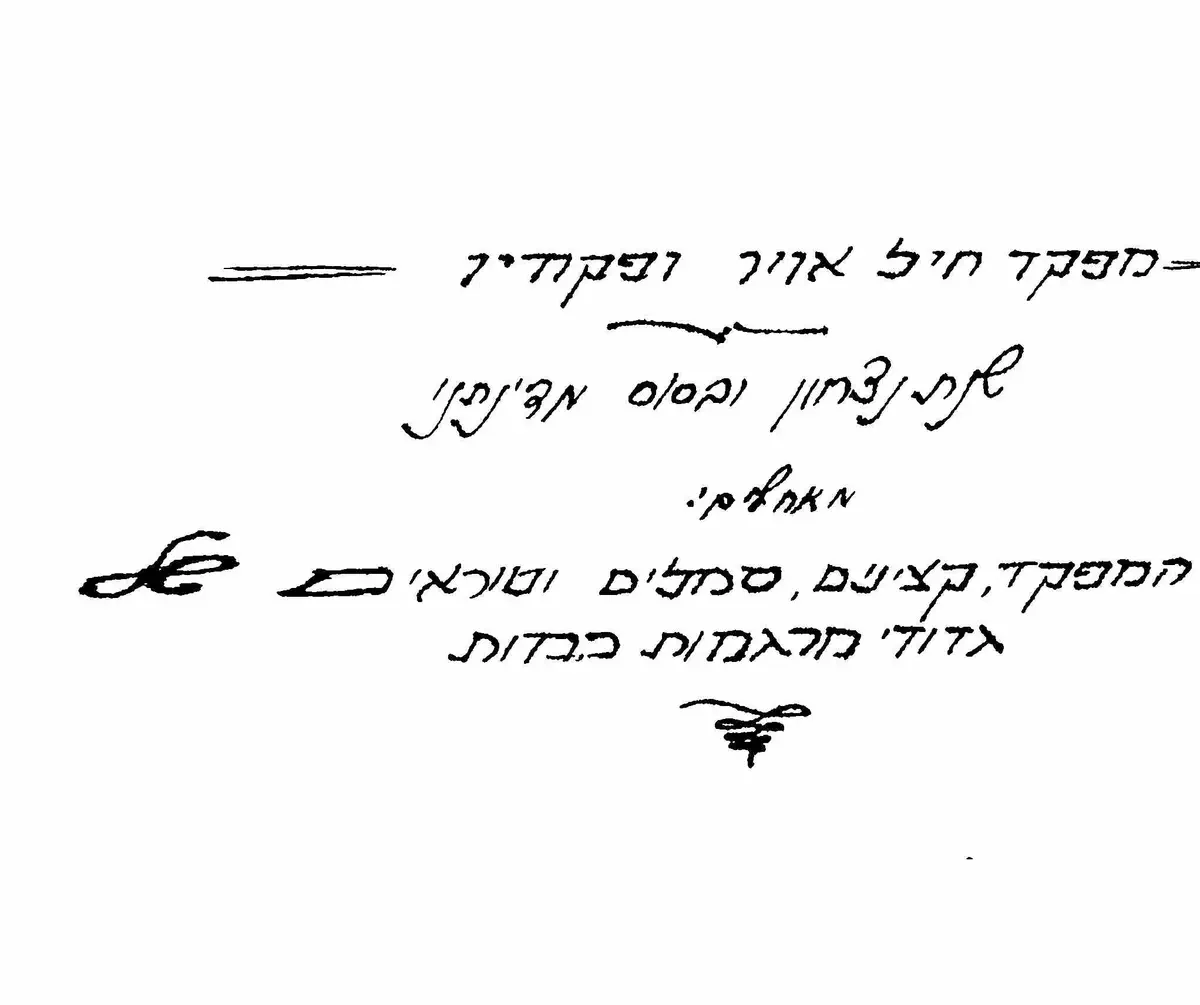 מפקד חיל אויר ופקודיו
שנת נצחון ובסוס מדינתנו
מאחלים:
המפקד, קצינים, סמלים וטוראים של
גדודי מרגמות כבדות